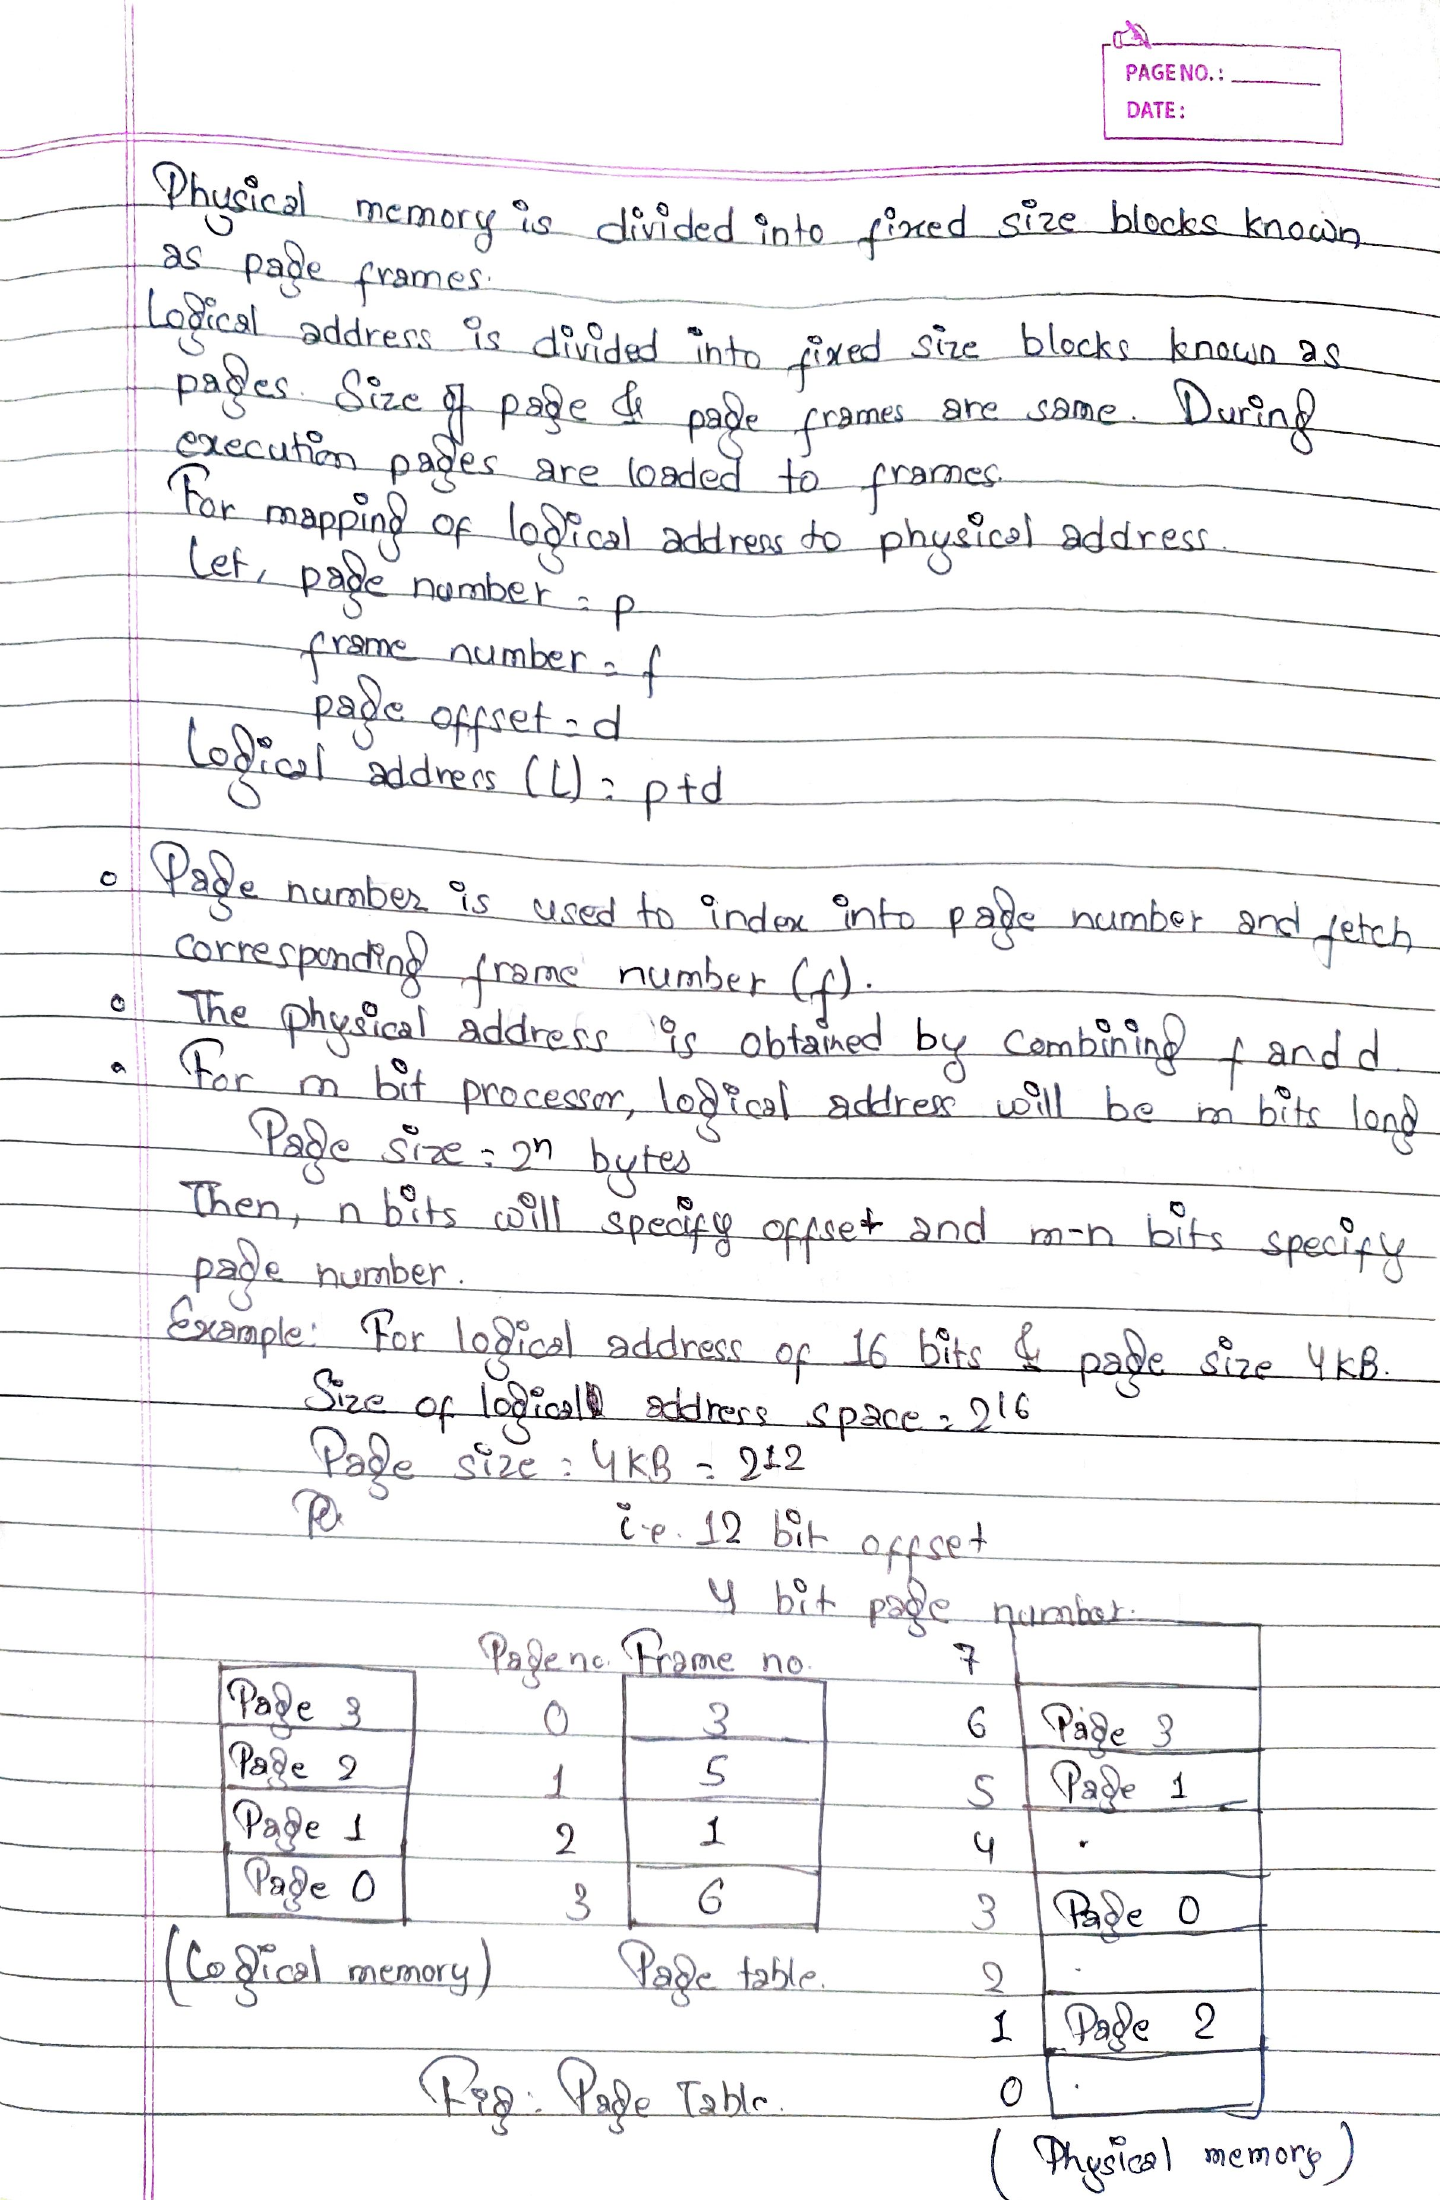 PAGE NO.:
DATE:
Physical memory is divided into fixed size blocks known
as page frames.
Logical address is divided into fixed size blocks known as
pages. Size of page & page frames are same. During
execution pages are loaded to frames.
For mapping of logical address to physical address.
Let, page number = p
frame number = f
page offset = d
Logical address (L) = p+d
o Page number is used to index into page number and fetch
corresponding frame number (f).
o The physical address is obtained by combining f and d.
o For m bit processor, logical address will be m bits long
Page size = 2ⁿ bytes
Then, n bits will specify offset and m-n bits specify
page number.
Example: For logical address of 16 bits & page size 4KB.
Size of logical address space = 216
Page size = 4KB = 212
i.e. 12 bit offset
4 bit page number.
Page no. Frame no. 7
Page 3 0 3 6 Page 3
Page 2 1 5 5 Page 1
Page 1 2 1 4 .
Page 0 3 6 3 Page 0
(Logical memory) Page table. 2 .
1 Page 2
Fig: Page Table. 0 .
(Physical memory)